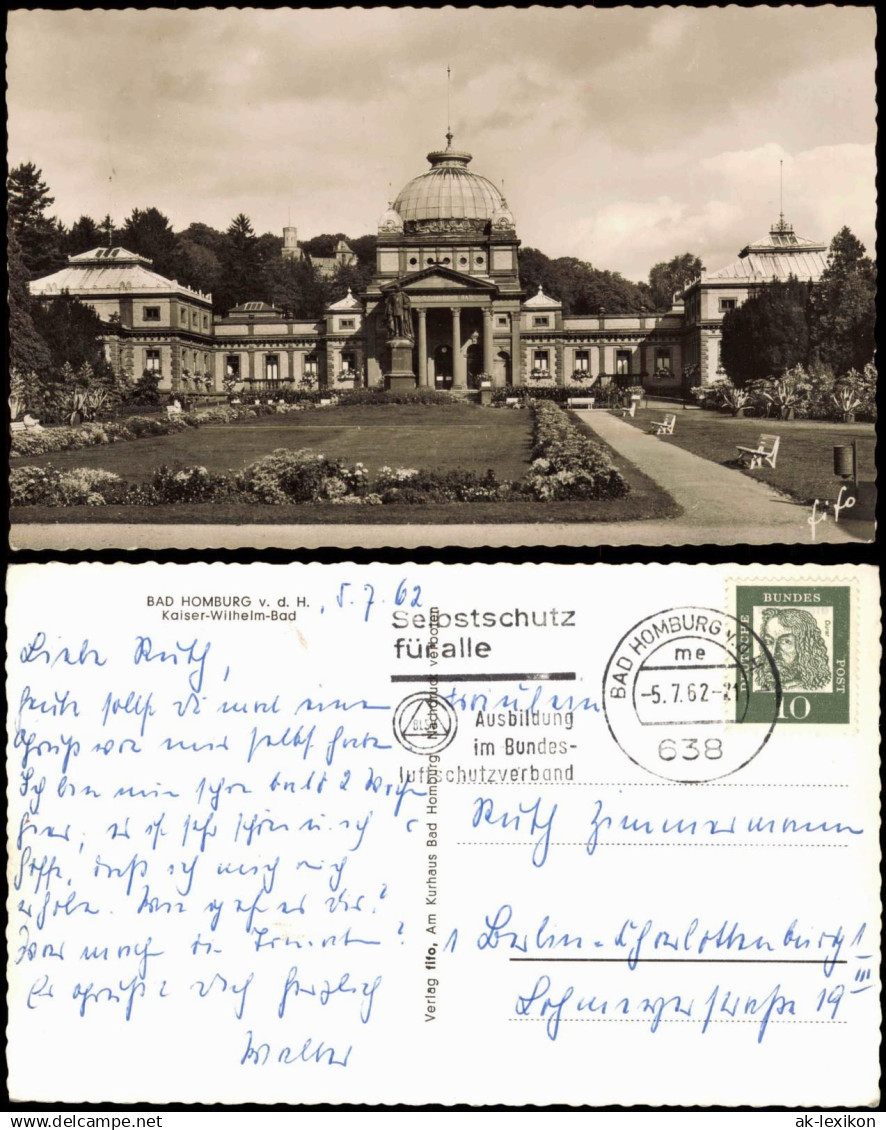 fifo
BAD HOMBURG v. d. H.
Kaiser-Wilhelm-Bad
5.7.62
Liebe Ruth,
heute sollst du mal einen
Gruß von mir selbst haben
Ich bin nun schon bald 2 Wochen
hier, es ist sehr schön u. ich
hoffe, daß ich mich
erhole. Wie geht es dir?
Was macht die
Es grüßt dich herzlich
Walter
Verlag fifo, Am Kurhaus Bad Homburg Nachdruck verboten
Selbstschutz
für alle
BLSV
Ausbildung
im Bundes-
luftschutzverband
BAD HOMBURG v. d. H.
me
-5.7.62-21
638
DEUTSCHE BUNDESPOST
Dürer
10
Fräulein
Ruth Zimmermann
1 Berlin-Charlottenburg 1
Lohmeyerstraße 19 III
www.ansichtskarten-lexikon.de
ak-lexikon